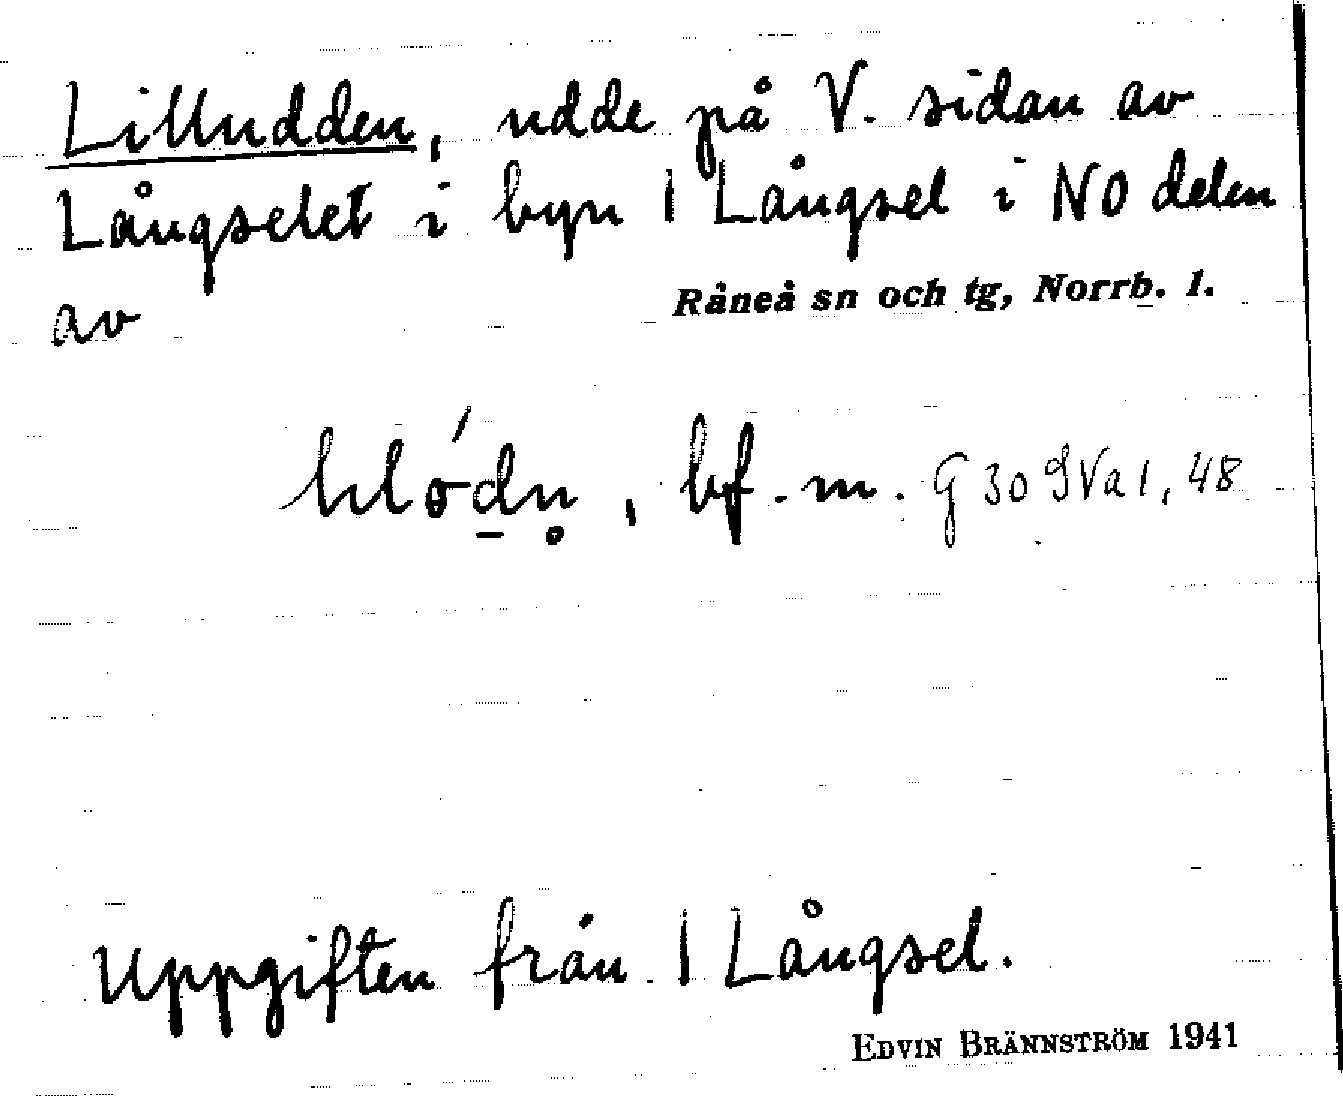 Lilludden, udde på V. sidan av
Långselet i byn 1 Långsel i NO delen
av Råneå sn och tg, Norrb. l.
bf. m. G 30 SVa 1, 48
Uppgiften från 1 Långsel.
EDVIN BRÄNNSTRÖM 1941